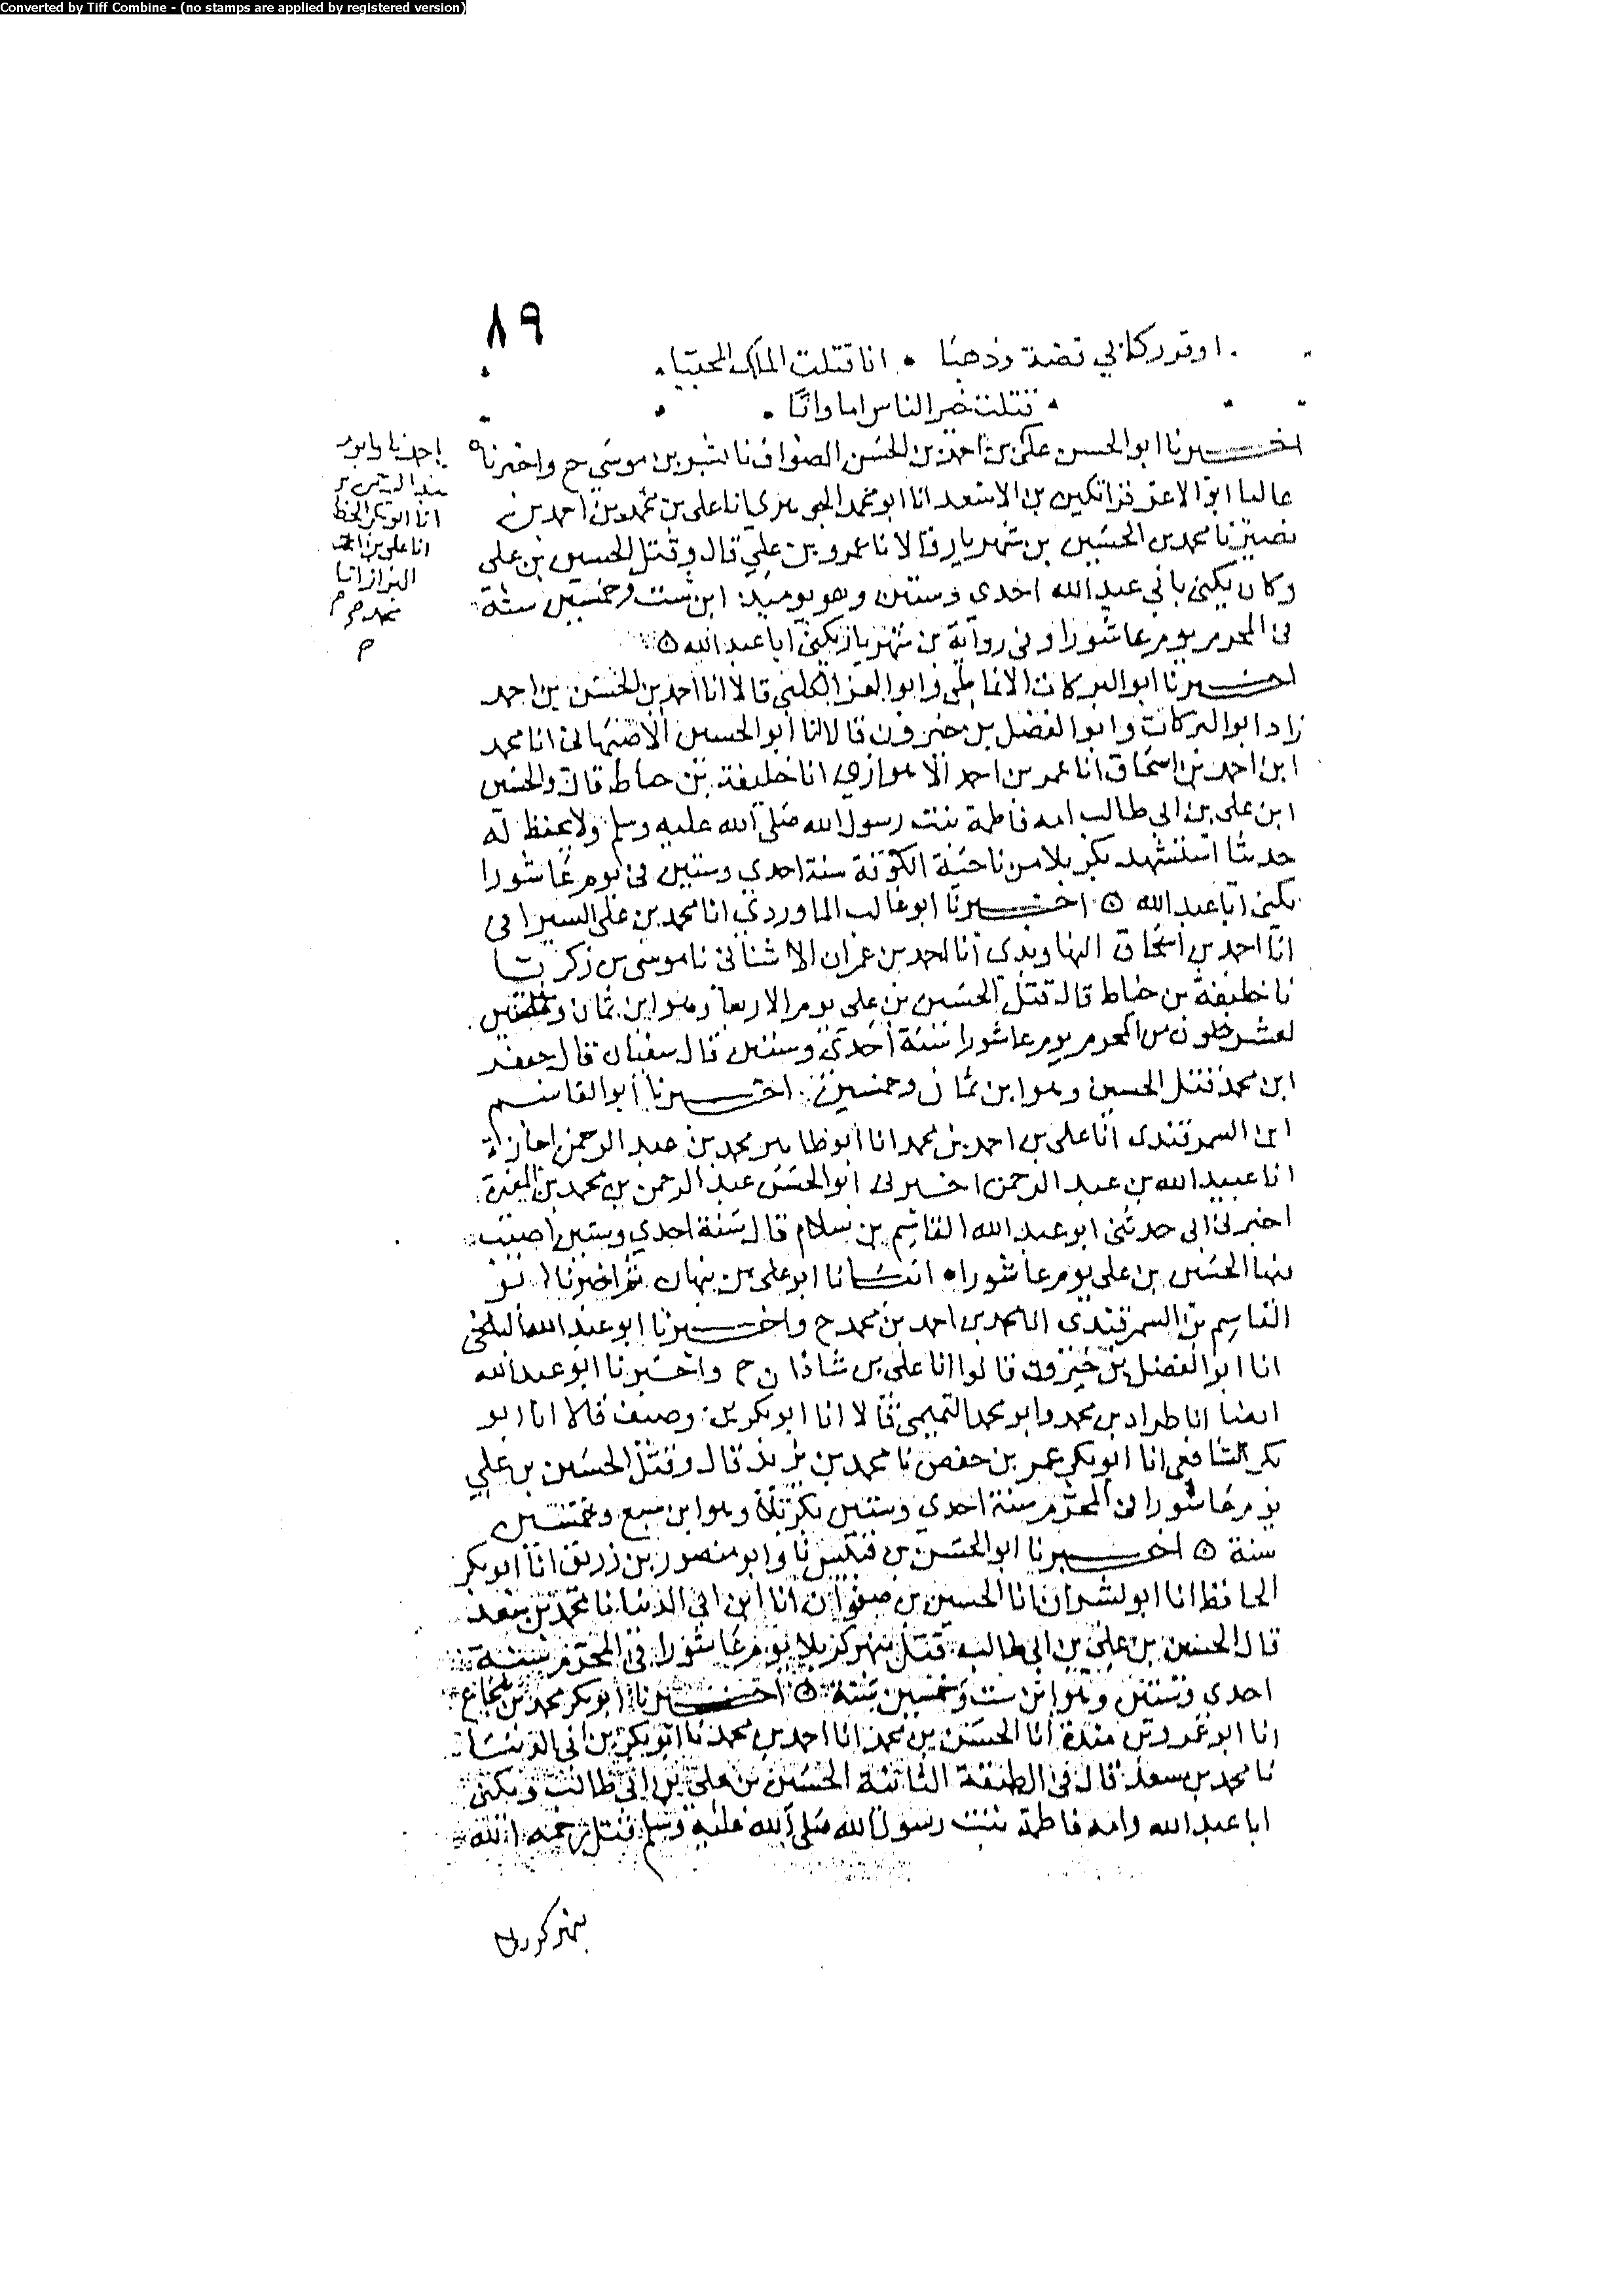 Converted by Tiff Combine - (no stamps are applied by registered version)
٨٩
اوقر ركابي فضة وذهبا انا قتلت الملك المحجبا
قتلت خير الناس اما وابا
اخبرنا ابو الحسن علي بن احمد بن الحسن الصواف نا بشر بن موسي ح واخبرناه
عاليا ابو الاعز قراتكين بن الاسعد انا ابو محمد الجوهري انا علي بن محمد بن احمد بن
نصير نا محمد بن الحسين بن شهريار قالا نا عمرو بن علي قال وقتل الحسين بن علي
وكان يكنى بابي عبد الله احدي وستين وهو يوميذ ابن ست وخمسين سنة
في المحرم يوم عاشورا وفي رواية بن شهريار يكنى ابا عبد الله
اخبرنا ابو البركات الانماطي وابو العز الكيلي قالا انا احمد بن الحسن بن احمد
زاد ابو البركات وابو الفضل بن خيرون قالا انا ابو الحسين الاصبهاني انا محمد
ابن احمد بن اسحاق انا عمر بن احمد الاهوازي انا خليفة بن خياط قال والحسين
ابن علي بن ابي طالب امه فاطمة بنت رسول الله صلى الله عليه وسلم ولا يحفظ له
حديثا استشهد بكربلا من ناحية الكوفة سنة احدي وستين في يوم عاشورا
يكنى ابا عبد الله اخبرنا ابو غالب الماوردي انا محمد بن علي السيرافي
انا احمد بن اسحاق النهاوندي انا احمد بن عمران الاشناني نا موسى بن زكريا
نا خليفة بن خياط قال قتل الحسين بن علي يوم الاربعا وهو ابن ثمان وخمسين
لعشر خلون من المحرم يوم عاشورا سنة احدي وستين قال سفيان قال جعفر
ابن محمد قتل الحسين وهو ابن ثمان وخمسين اخبرنا ابو القاسم
ابن السمرقندى انا علي بن احمد بن محمد انا ابو طاهر محمد بن عبد الرحمن اجازة
انا عبيد الله بن عبد الرحمن اخبرني ابو الحسن عبد الرحمن بن محمد بن المغيرة
اخبرني ابي حدثني ابو عبد الله القاسم بن سلام قال سنة احدي وستين اصيب
فيها الحسين بن علي يوم عاشورا انبانا ابو علي بن نبهان ثم اخبرنا ابو
القاسم بن السمرقندي انا محمد بن احمد بن محمد ح واخبرنا ابو عبد الله البلخي
انا ابو الفضل بن خيرون قالوا انا علي بن شاذان ح واخبرنا ابو عبد الله
ايضا انا طراد بن محمد وابو محمد التميمي قالا انا ابو بكر بن وصيف قالا انا ابو
بكر الشافعي انا ابو بكر عمر بن حفص نا محمد بن يزيد قال وقتل الحسين بن علي
يوم عاشورا في المحرم سنة احدي وستين بكربلا وهو ابن سبع وخمسين
سنة اخبرنا ابو الحسن بن قبيس نا وابو منصور بن زريق انا ابو بكر
الحافظ انا ابو بشران انا الحسين بن صفوان انا ابن ابي الدنيا نا محمد بن سعد
قال الحسين بن علي بن ابي طالب قتل بنهر كربلا يوم عاشورا في المحرم سنة
احدي وستين وهو ابن ست وخمسين سنة اخبرنا ابو بكر محمد بن شجاع
انا ابو عمرو بن مندة انا الحسن بن محمد انا احمد بن محمد نا ابو بكر بن ابي الدنيا
نا محمد بن سعد قال في الطبقة الثانية الحسين بن علي بن ابي طالب ويكنى
ابا عبد الله وامه فاطمة بنت رسول الله صلى الله عليه وسلم قتل رحمه الله
بنهر كربلا
انا ابو بكر الخط
انا علي بن احمد
البزاز انا
محمد